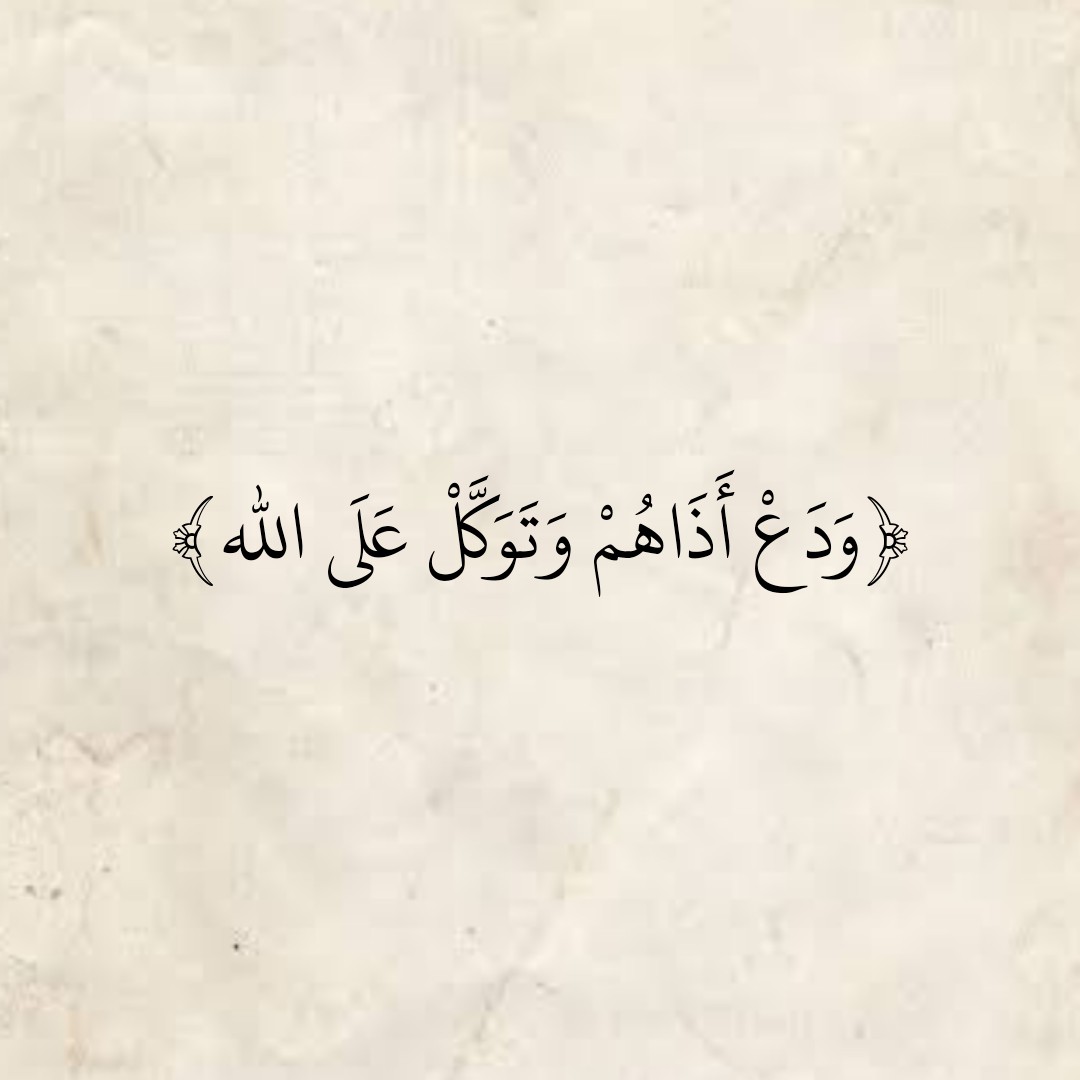 ﴿وَدَعْ أَذَاهُمْ وَتَوَكَّلْ عَلَى اللّٰه﴾